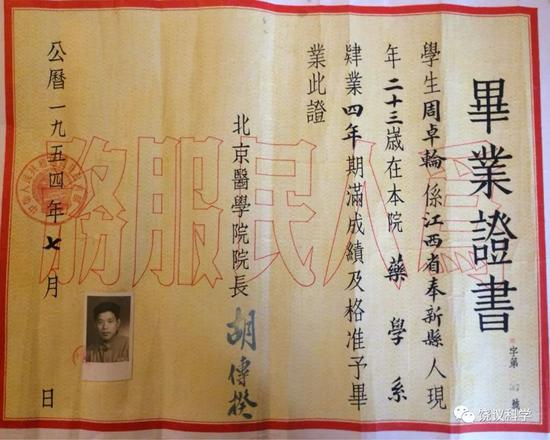 畢業證書
字第
號
學生周卓輪係江西省奉新縣人現
年二十三歲在本院藥學系
肄業四年期滿成績及格准予畢
業此證
北京醫學院院長 胡傳揆
公曆一九五四年七月 日
為人民服務
饶议科学